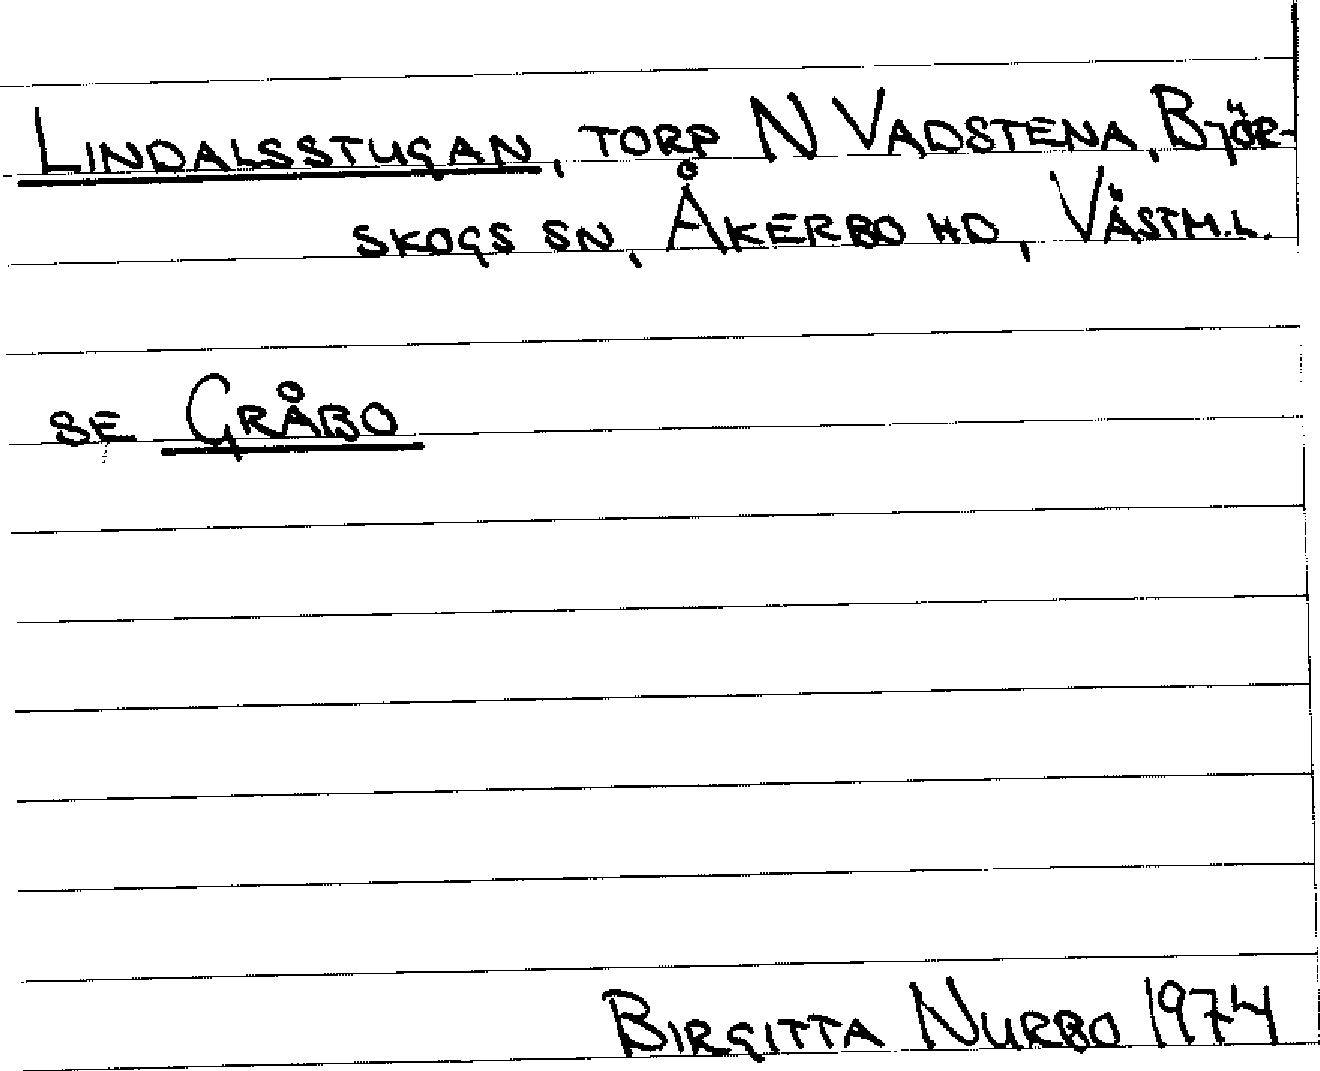 LINDALSSTUGAN, TORP N VADSTENA, BJÖR-
SKOGS SN, ÅKERBO HD, VÄSTM.L.
SE GRÅBO
BIRGITTA NURBO 1974